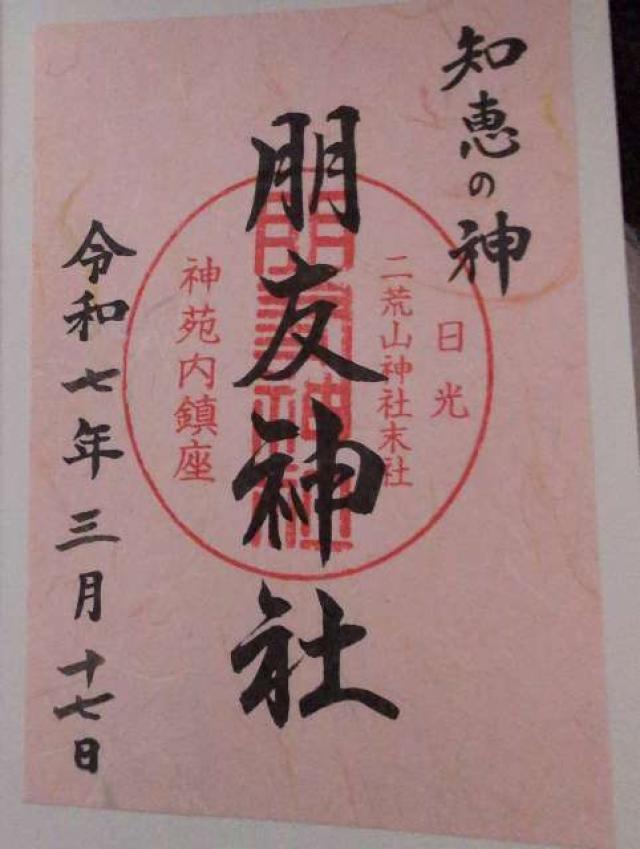 知恵の神
日光
二荒山神社末社
朋友神社
神苑内鎮座
令和七年三月十七日